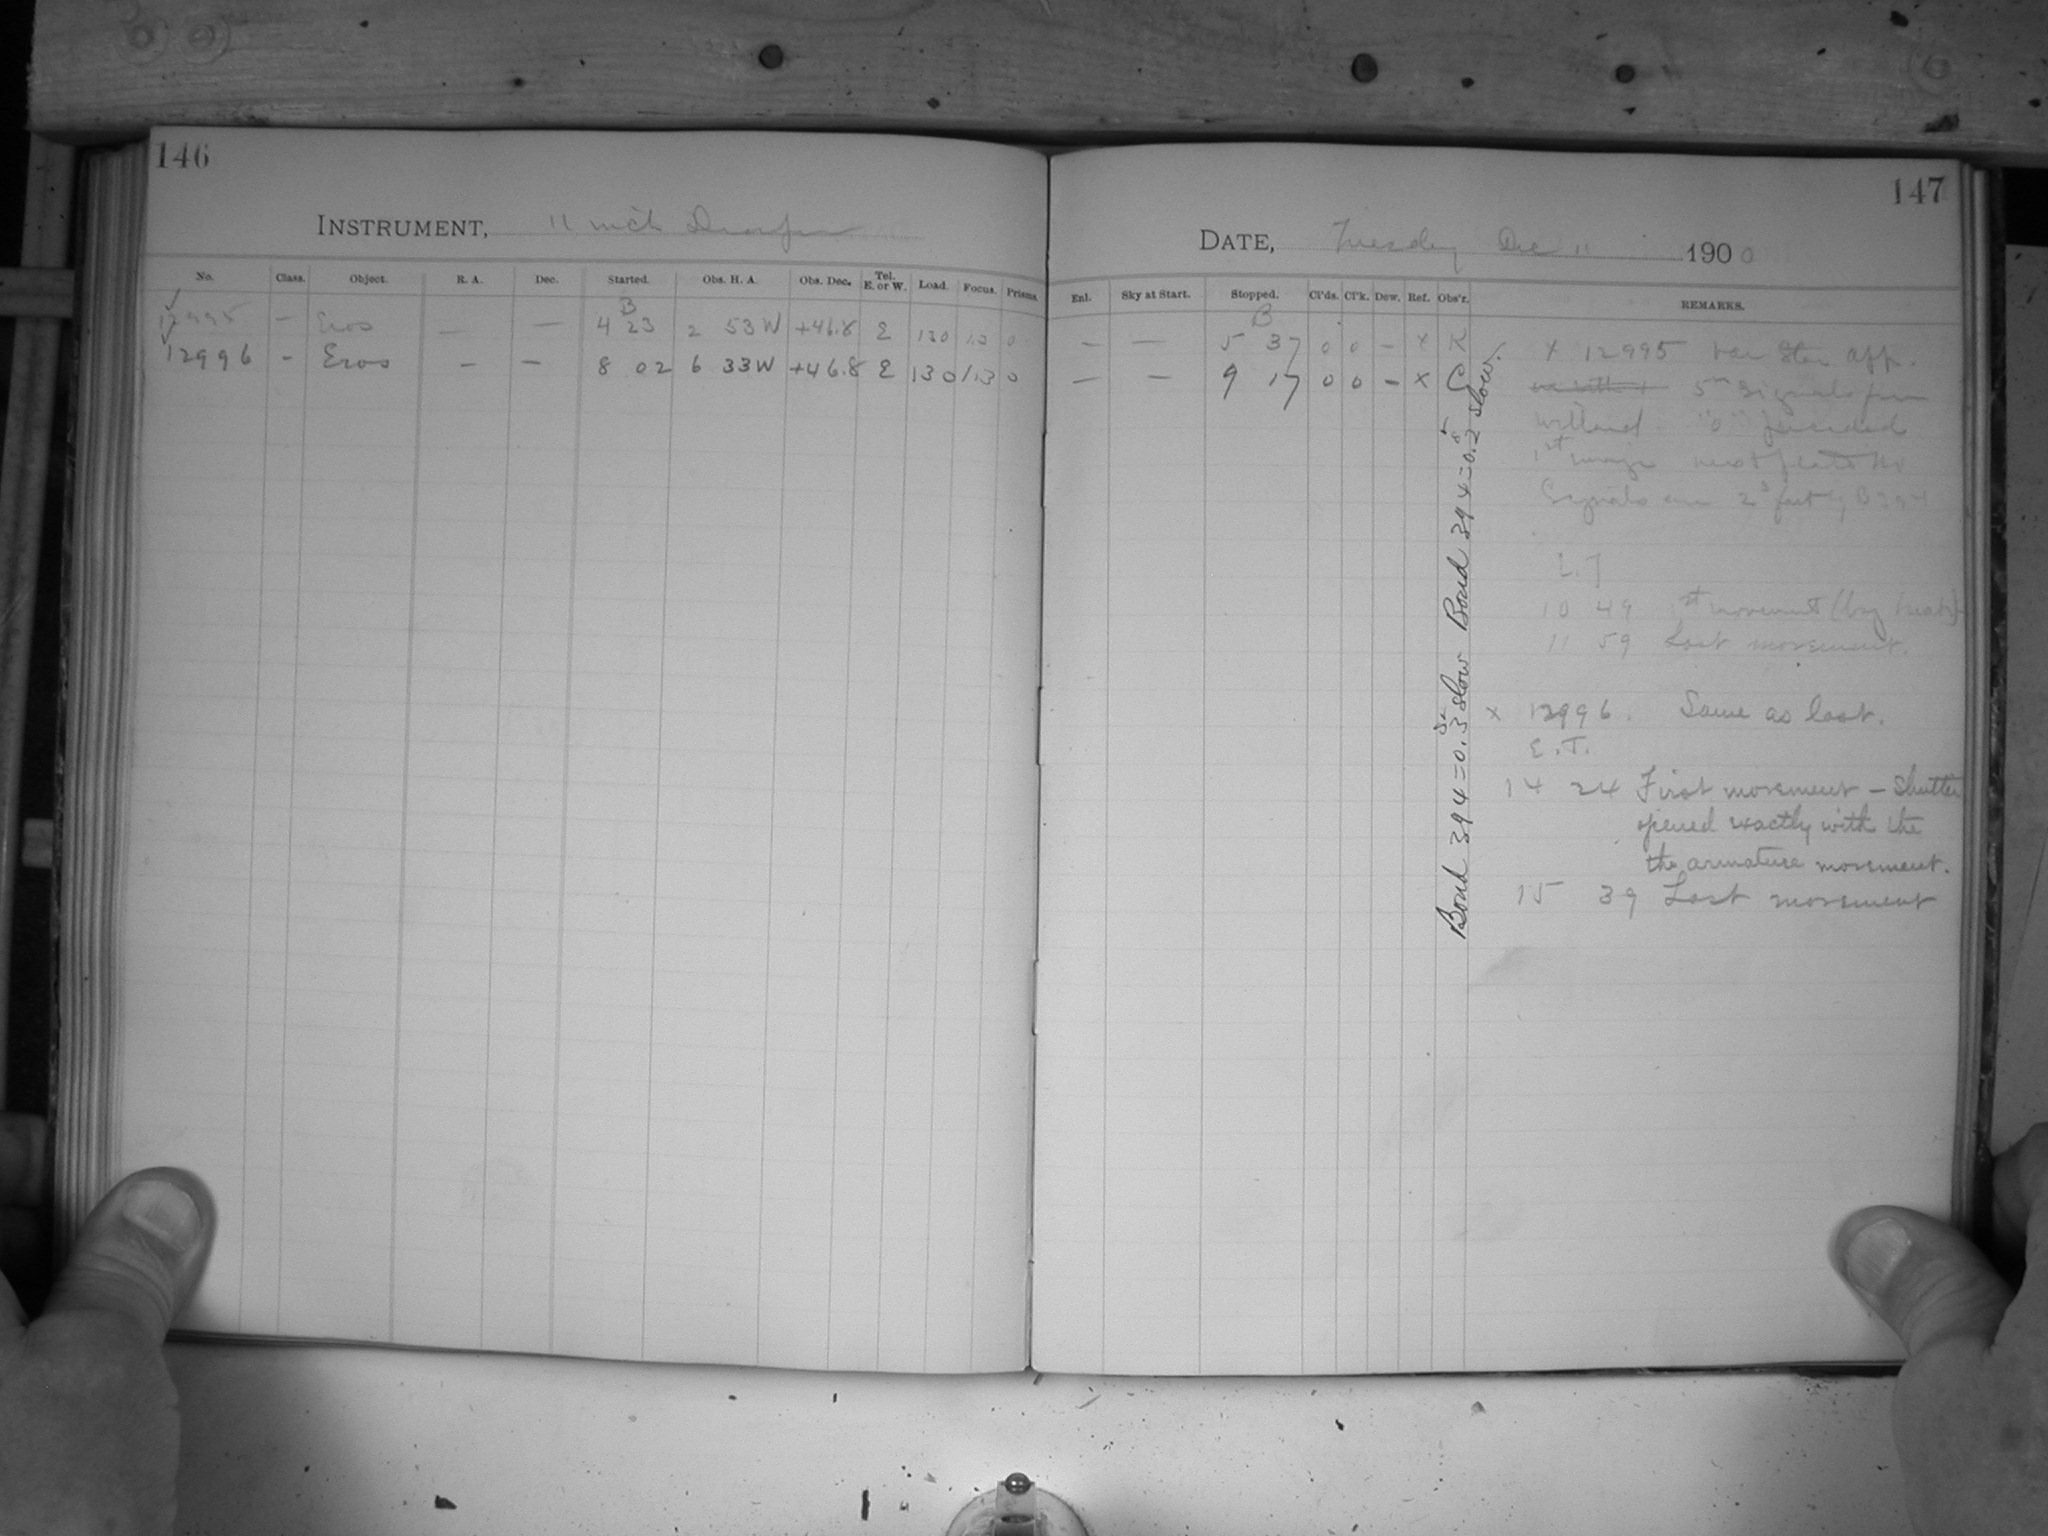 146
INSTRUMENT, 11 inch Draper
No. Class. Object. R. A. Dec. Started. Obs. H. A. Obs. Dec. Tel. E. or W. Load. Focus. Prisms.
B
✓ 12995 – Eros — — 4 23 2 53 W +46.8 E 130 13 0
✓ 12996 – Eros – – 8 02 6 33 W +46.8 E 130 13 0
147
DATE, Tuesday Dec 11 1900
Enl. Sky at Start. Stopped. Cl'ds. Cl'k. Dew. Ref. Obs'r. REMARKS.
B
— — 5 37 0 0 – x K
— — 9 17 0 0 – x C
x 12995 Var Star app.
5m signals from
Willard "0" preceded
1st
Signals are 2s fast of B 394
10 49 1st movement
11 59 Last movement.
x 12996. Same as last.
E. T.
14 24 First movement – Shutter
opened exactly with the
the armature movement.
15 39 Last movement
Bond 394 = 0.3 slow Bond 394 = 0.2 slow.